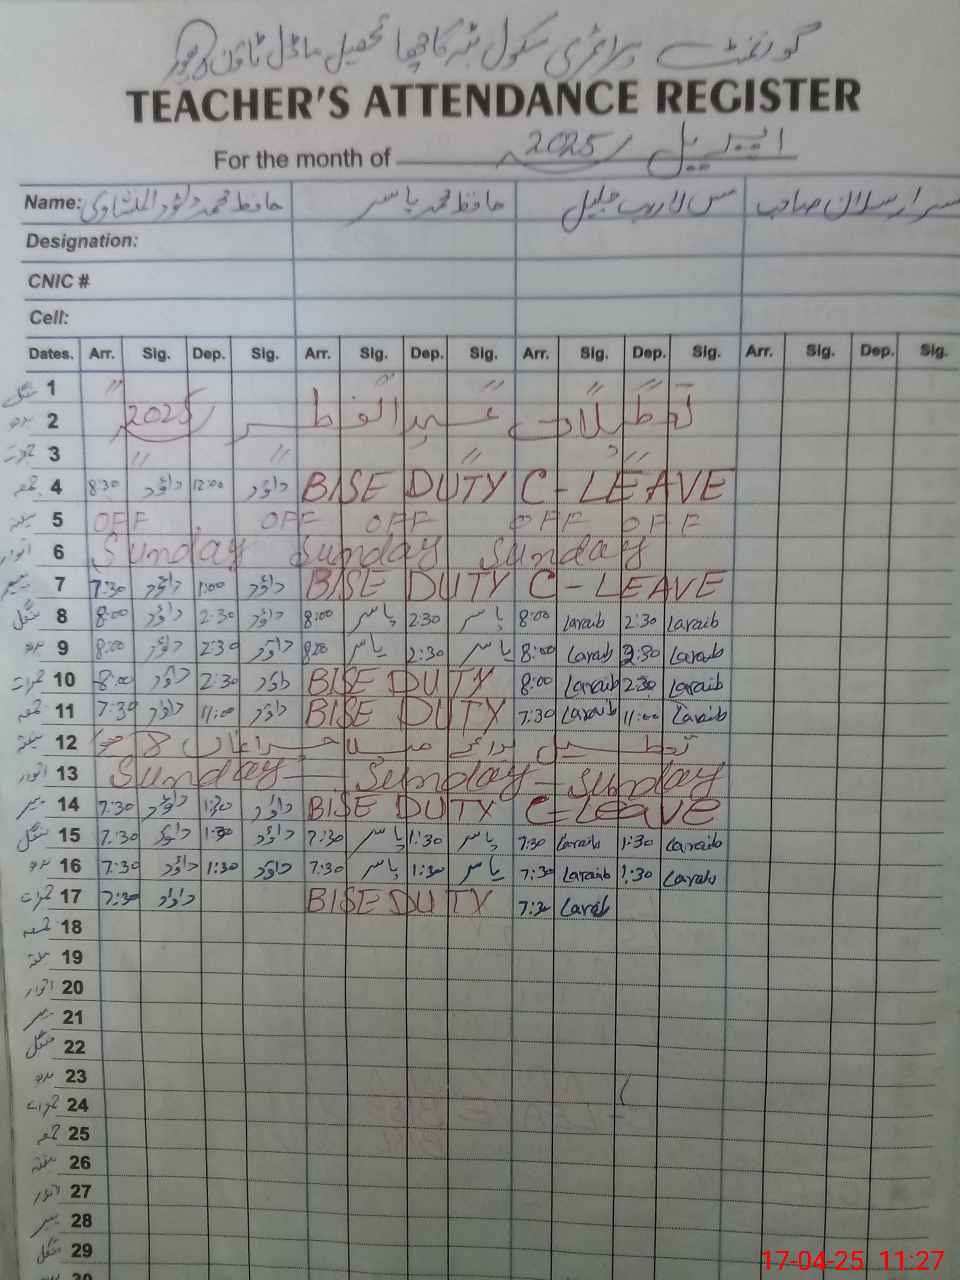 گورنمنٹ پرائمری سکول تحصیل ماڈل ٹاؤن لاہور
TEACHER'S ATTENDANCE REGISTER
For the month of اپریل 2025
Name: حافظ محمد داؤد حافظ محمد یاسر مس لاریب جلیل سر ارسلان صاحب
Designation:
CNIC #
Cell:
Dates. Arr. Sig. Dep. Sig. Arr. Sig. Dep. Sig. Arr. Sig. Dep. Sig. Arr. Sig. Dep. Sig.
منگل 1 〃 〃 〃 〃 〃
بدھ 2 تعطیلات عید الفطر 2025
جمعرات 3 〃 〃 〃 〃
جمعہ 4 8:30 داؤد 12:00 داؤد BISE DUTY C-LEAVE
ہفتہ 5 OFF OFF OFF OFF OFF
اتوار 6 Sunday Sunday Sunday
پیر 7 7:30 داؤد 1:00 داؤد BISE DUTY C-LEAVE
منگل 8 8:00 داؤد 2:30 داؤد 8:00 یاسر 2:30 یاسر 8:00 Laraib 2:30 Laraib
بدھ 9 8:00 داؤد 2:30 داؤد 8:00 یاسر 2:30 یاسر 8:00 Laraib 2:30 Laraib
جمعرات 10 8:00 داؤد 2:30 داؤد BISE DUTY 8:00 Laraib 2:30 Laraib
جمعہ 11 7:30 داؤد 11:00 داؤد BISE DUTY 7:30 Laraib 11:00 Laraib
ہفتہ 12 تعطیل برائے میلا چراغاں
اتوار 13 Sunday - Sunday - Sunday
پیر 14 7:30 داؤد 1:30 داؤد BISE DUTY C-Leave
منگل 15 7:30 داؤد 1:30 داؤد 7:30 یاسر 1:30 یاسر 7:30 Laraib 1:30 Laraib
بدھ 16 7:30 داؤد 1:30 داؤد 7:30 یاسر 1:30 یاسر 7:30 Laraib 1:30 Laraib
جمعرات 17 7:30 داؤد BISE DUTY 7:30 Laraib
جمعہ 18
ہفتہ 19
اتوار 20
پیر 21
منگل 22
بدھ 23
جمعرات 24
جمعہ 25
ہفتہ 26
اتوار 27
پیر 28
منگل 29
30
17-04-25 11:27